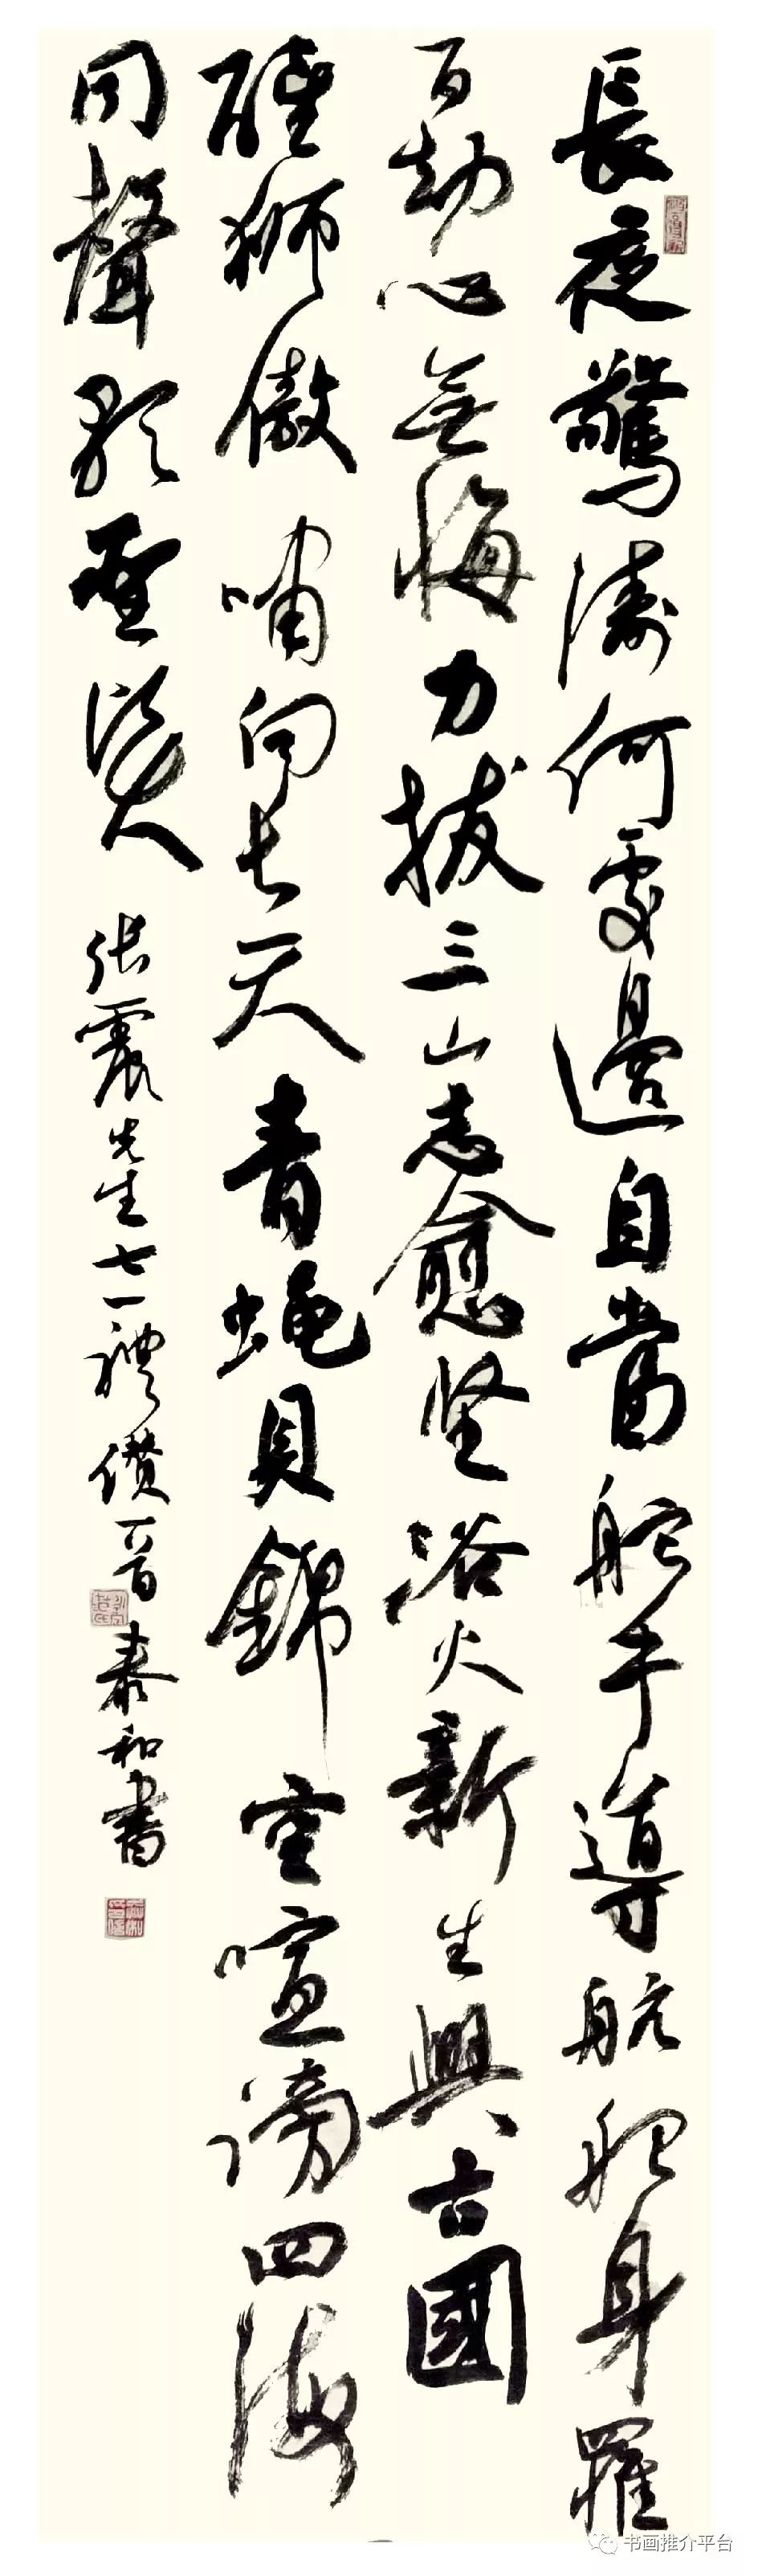 長夜驚濤何處邊自當舵手導航船身罹
百劫心無悔力拔三山志愈堅浴火新生興古國
醒獅傲嘯向长天青蝇貝錦空喧謗四海
同聲聖賢
张震先生七一禮讚晋泰和書
书画推介平台